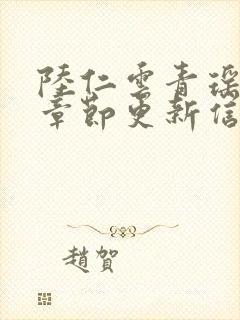 陸仁雲青瑶
章節更新信
趙賀